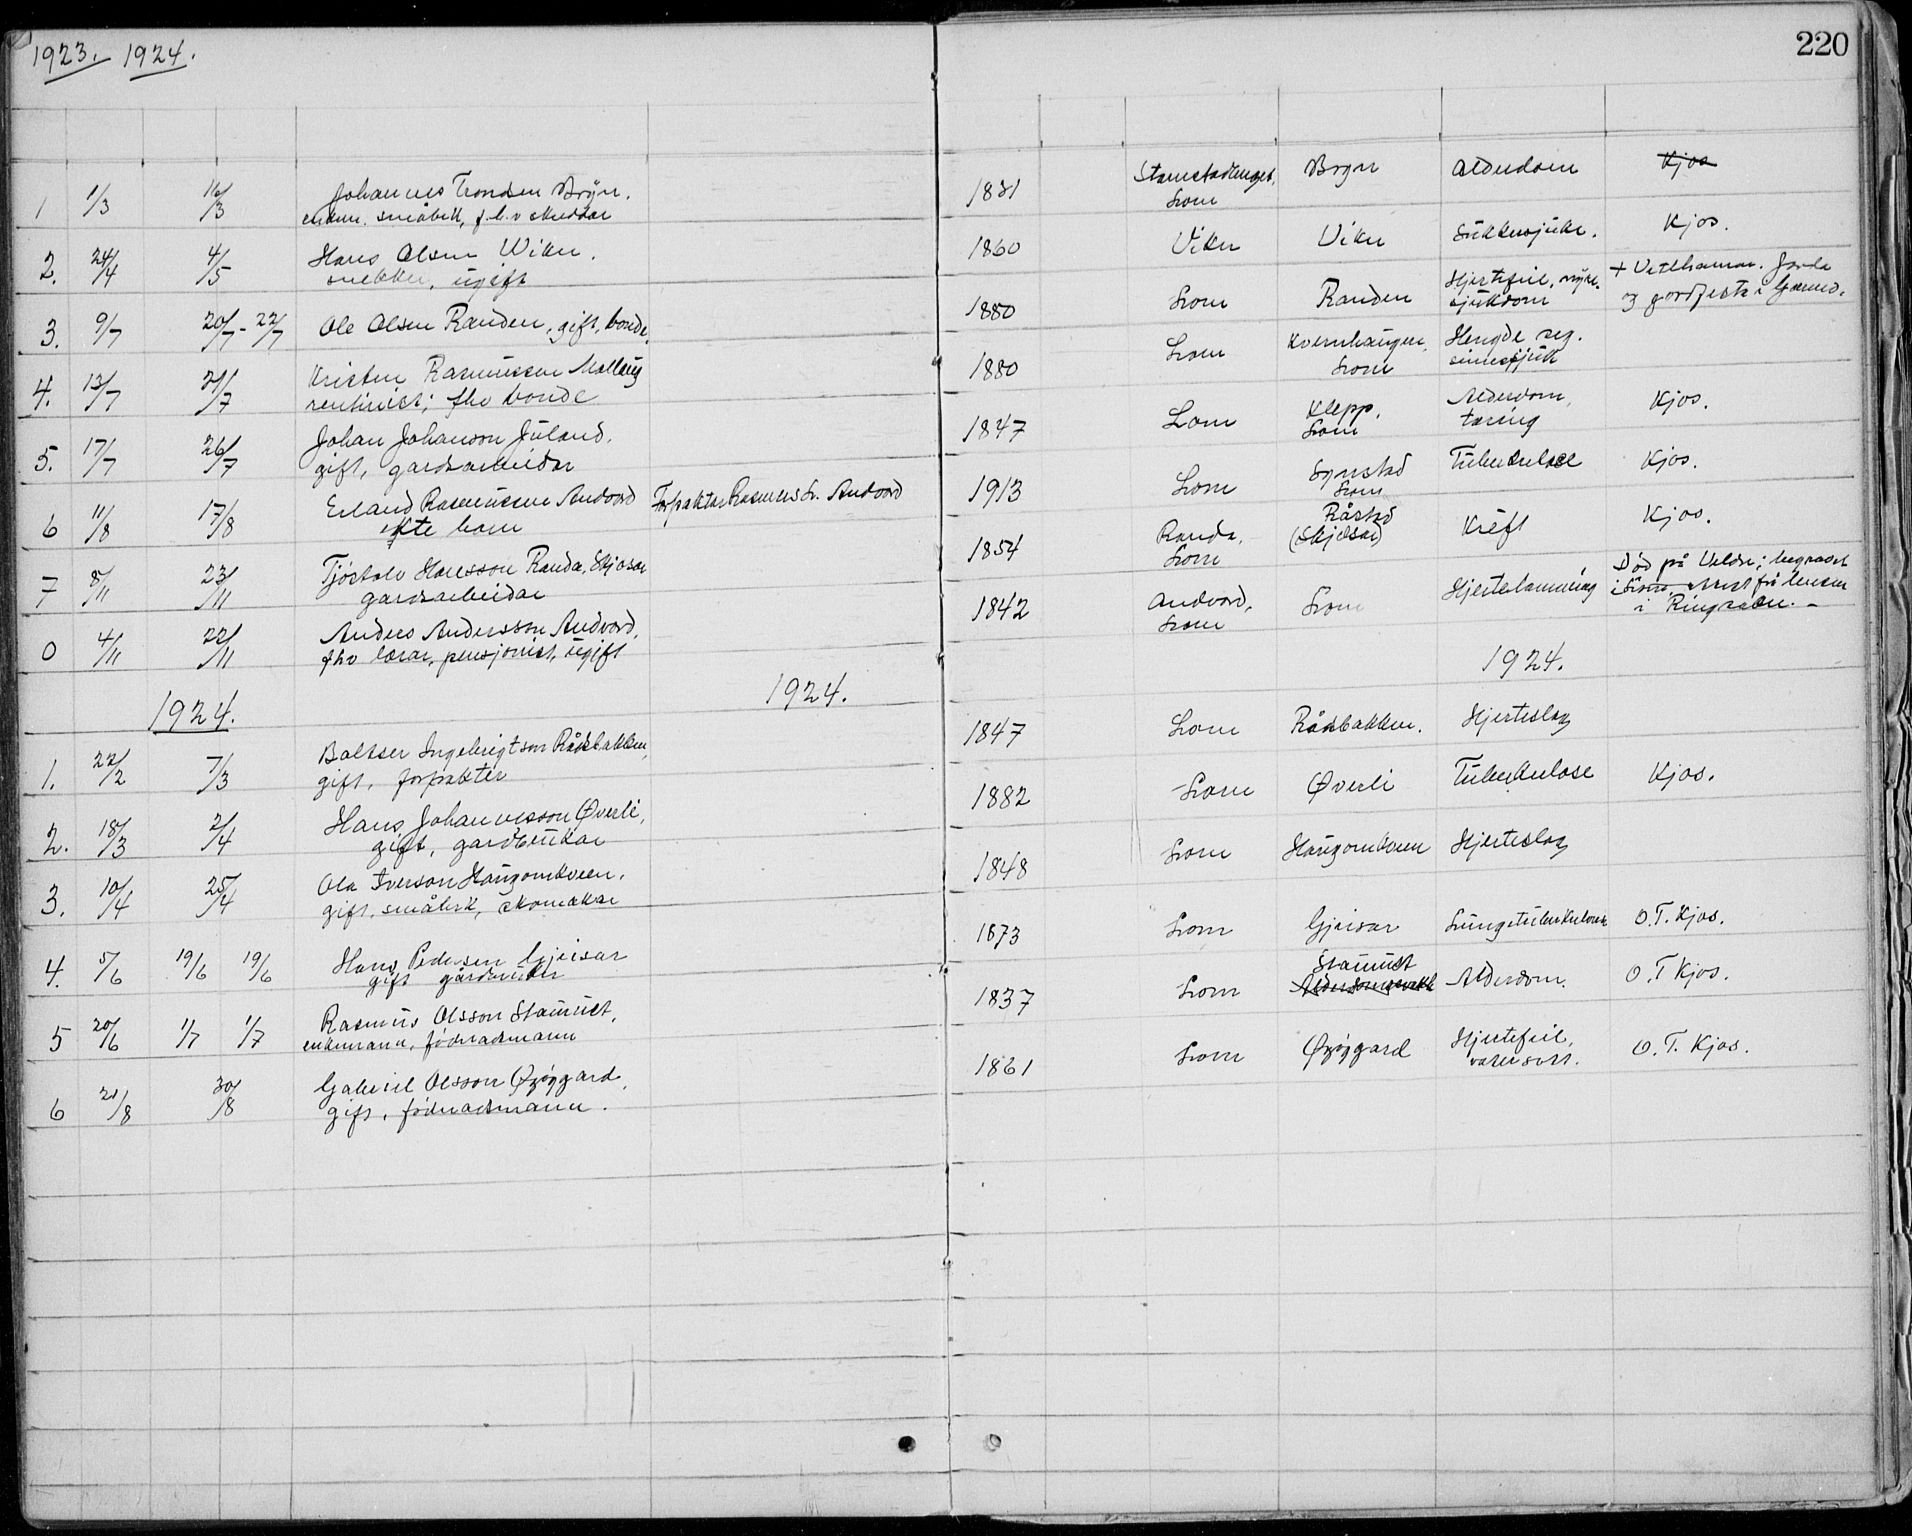 1923. 1924.
220
1 1/3 16/3 Johannes Tronsen Bryn.
enkem. småbrk, f.h.v. skreddar
1831 Lom Bryn Alderdom Kjos
2. 24/4 4/5 Hans Olsen Viken.
snekker, ugift
1860 Viken Viken Sukkersjuke. Kjos.
3. 9/7 20/7 - 22/7 Ole Olsen Randen, gift, bonde.
1880 Lom Randen Hjertefeil, nyre-
sjukdom
+ Vetlhamar. Jorda
og jordfesta i
4. 13/7 21/7 Kristen Rasmussen
rentenist; fhv bonde
1880 Lom Kvernhaugen, Hengde seg.
Lom sinnssjuk
5. 17/7 26/7 Johan Johanson Juland.
gift, gardsarbeidar
1847 Lom Klepp, Alderdom, Kjos.
Lom tæring
6 11/8 17/8 Erland Rasmussen Andvord Forpaktar Rasmus Andvord
ekte barn
1913 Lom Synstad Tuberkulose Kjos.
Lom
7 8/11 23/11 Tjøstolv Hansson Randa, Skjåsar
gardsarbeidar
1854 Randa, Råstad Kreft Kjos.
Lom
0 4/11 22/11 Anders Andersson Andvord,
fhv lærar, pensjonist, ugift
1842 Andvord, Lom Hjertelamming Død på Veldre; begravet
Lom i Lom. Attest frå lensm
i Ringsaker.
1924. 1924. 1924.
1. 22/2 7/3 Baltser Ingebrigtson Råsbakken,
gift, forpakter
1847 Lom Råsbakken. Hjerteslag
2. 18/3 2/4 Hans Johannesson Øverli,
gift, gardbrukar
1882 Lom Øverli Tuberkulose Kjos.
3. 10/4 25/4 Ola Iverson Haugomkveen.
gift, småbrk, skomakar
1848 Lom Haugomkveen Hjerteslag
4. 5/6 19/6 19/6 Hans Pedersen Gjeisar
gift gårdbruker
1873 Lom Gjeisar Lungetuberkulose O.T. Kjos.
5 20/6 1/7 1/7 Rasmus Olsson Stamust.
enkemann, föderådsmann
1837 Lom Stamust Alderdom. O.T Kjos.
6 21/8 30/8 Gabriel Olsson Øygard,
gift, föderådsmann.
1861 Lom Øygard Hjertefeil, O.T. Kjos.
vatersott.